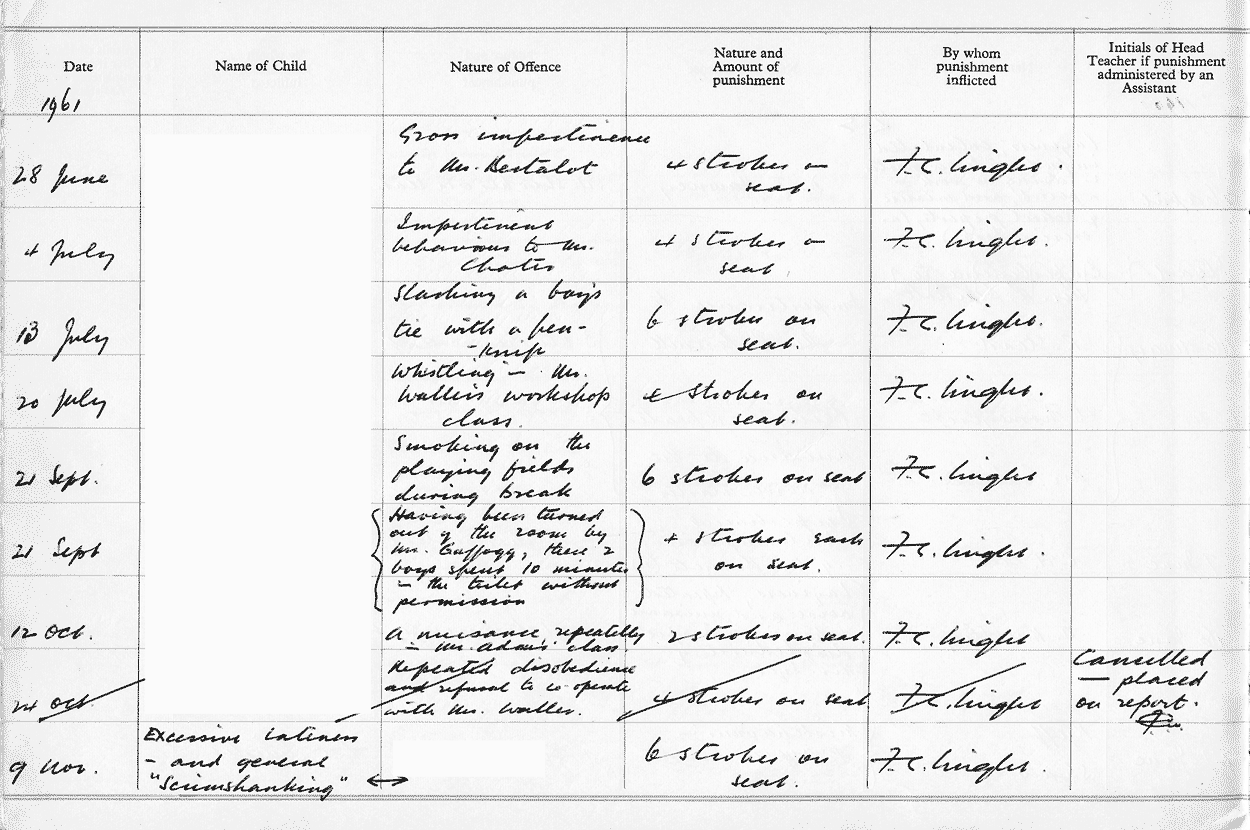 Date
Name of Child
Nature of Offence
Nature and
Amount of
punishment
By whom
punishment
inflicted
Initials of Head
Teacher if punishment
administered by an
Assistant
1961
28 June
Gross impertinence
to Mr.
4 strokes on
seat.
F.C.
4 July
Impertinent
behaviour to Mr.
Chater
4 strokes on
seat.
F.C.
13 July
Slashing a boy's
tie with a pen-
-knife
6 strokes on
seat.
F.C.
20 July
Whistling in Mr.
Waller's workshop
class.
strokes on
seat.
F.C.
21 Sept.
Smoking on the
playing fields
during break
6 strokes on seat
F.C.
21 Sept
Having been turned
out of the room by
Mr. Guffogg, these 2
boys spent 10 minutes
in the toilet without
permission
4 strokes each
on seat.
F.C.
12 Oct.
A nuisance, repeatedly
in Mr. Adams' class
2 strokes on seat.
F.C.
24 Oct.
Repeated disobedience
and refusal to co-operate
with Mr. Waller.
4 strokes on seat
F.C.
Cancelled
— placed
on report.
9 Nov.
Excessive lateness
- and general
"Scrimshanking" ↔
6 strokes on
seat.
F.C.